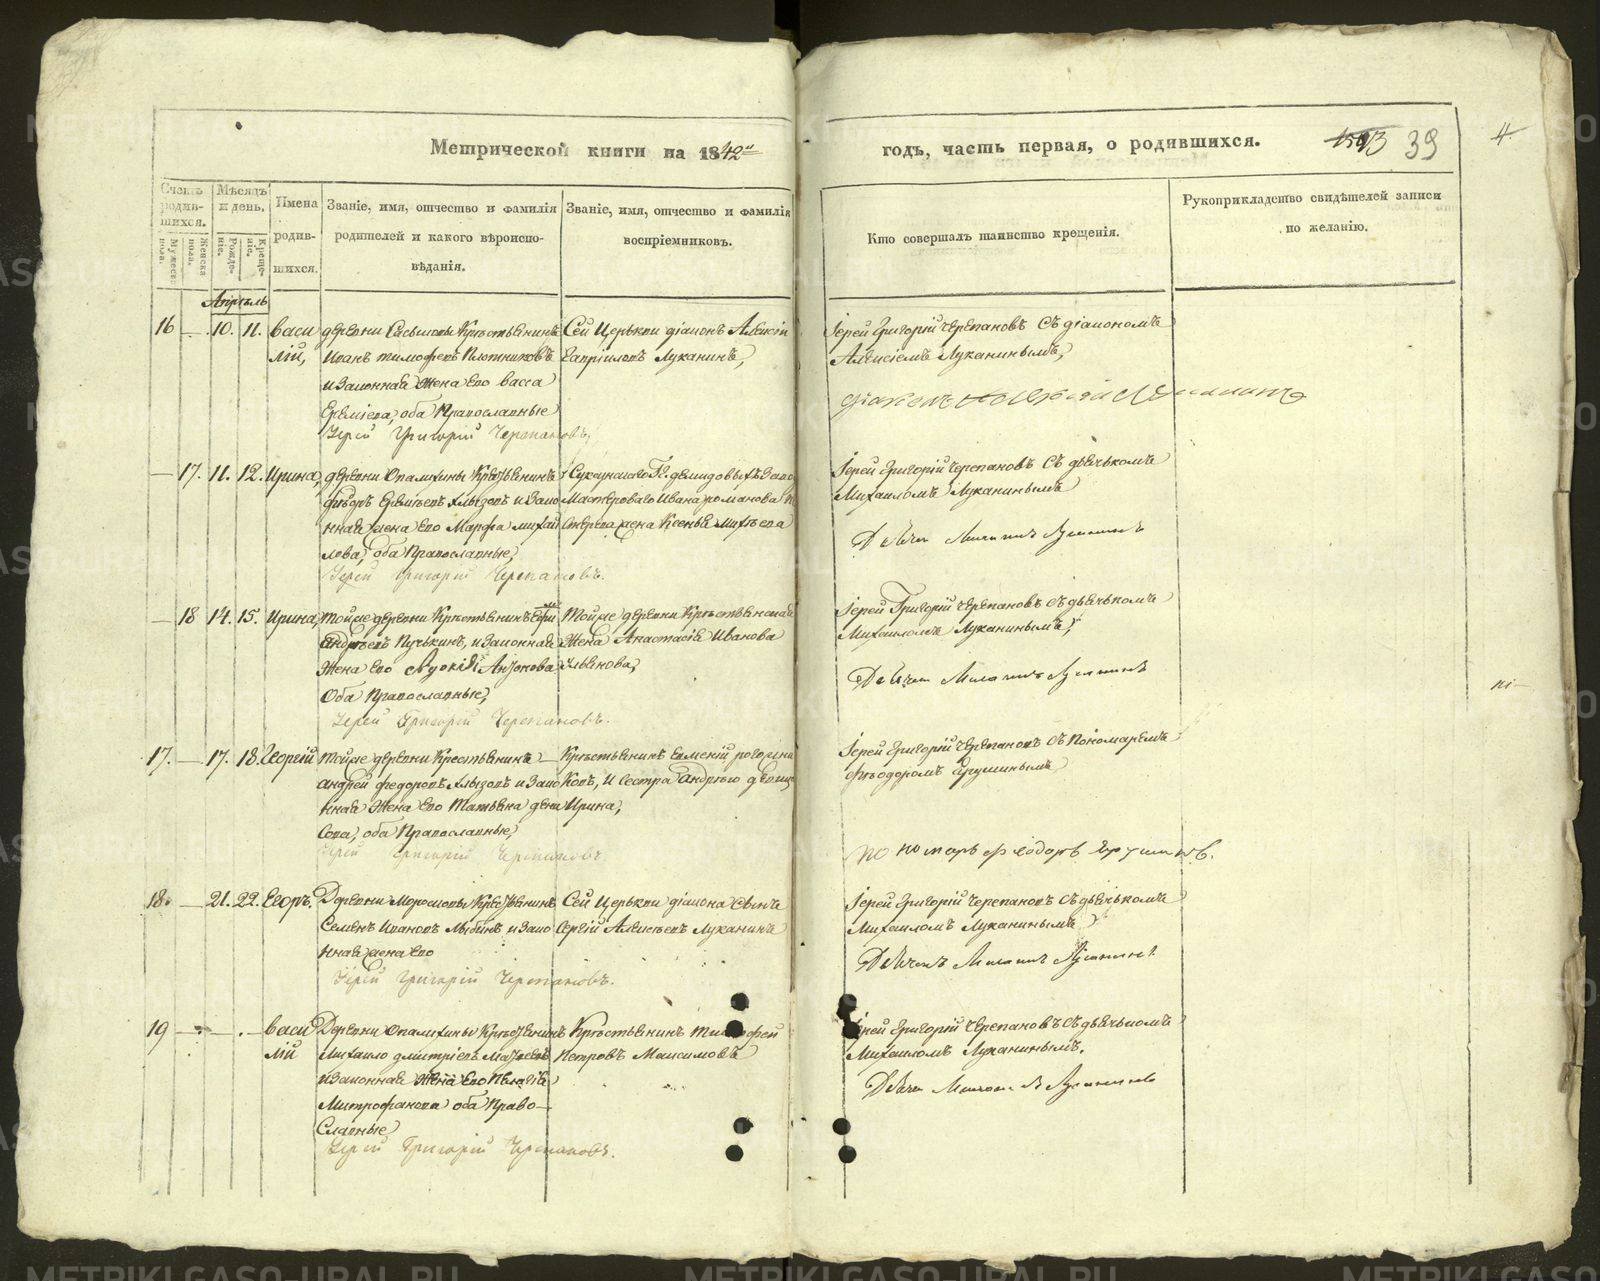 Метрической книги на 1842й годъ, часть первая, о родившихся.
39
4.
Счетъ родившихся.
Мужеска пола.
Женска пола.
Мѣсяцъ и день.
Рожденіе.
Крещеніе.
Имена родившихся.
Званіе, имя, отчество и фамилія родителей и какого вѣроисповѣданія.
Званіе, имя, отчество и фамилія воспріемниковъ.
Кто совершалъ таинство крещенія.
Рукоприкладство свидѣтелей записи по желанію.
Апрѣль
16 — 10. 11. Васи
лій,
деревни Крестьянинъ
Иванъ Тимофеевъ Плотниковъ
и Законная Жена Его Васса
Еремѣева, оба Православные
Іерей Григорій Черепановъ,
Сей Церкви діаконъ Алексій
Гавріиловъ Луканинъ,
Іерей Григорій Черепановъ Съ діакономъ
Алексіемъ Луканинымъ,
діаконъ Алексій Луканинъ
— 17. 11. 12. Ирина,
деревни Опалихины Крестьянинъ
Еремѣевъ Глызовъ и Зако
нная жена Его Марфа Михай
лова, оба Православные,
Іерей Григорій Черепановъ.
Сухунскаго Гг. демидовыхъ Заво
Мастероваго Ивана романова
жена Ксенья
Іерей Григорій Черепановъ Съ дьячькомъ
Михаиломъ Луканинымъ
Дьячек Михаилъ Луканинъ
— 18 14. 15. Ирина,
Тойже деревни Крестьянинъ
Андрѣевъ Пучькинъ, и Законная
Жена Его Антонова
Оба Православные,
Іерей Григорій Черепановъ.
Тойже деревни Крестьянская
Жена Анастасія Иванова
Ульянова,
Іерей Григорій Черепановъ Съ дьячькомъ
Михаиломъ Луканинымъ,
Дьячек Михаилъ Луканинъ
17. — 17. 18. Георгій
Тойже деревни Крестьянинъ
Андрей Федоровъ Глызовъ и Зако
нная Жена Его Татьяна дени
сова, оба Православные,
Іерей Григорій Черепановъ.
Крестьянинъ Евменій рогожни
ковъ, и Сестра Андрѣю девица
Ирина,
Іерей Григорій Черепановъ Съ Пономаремъ
Феодоромъ
пономарь Феодоръ
18. — 21. 22. Егоръ.
Деревни Морозковы Крестьянинъ
Семенъ Ивановъ Лыбинъ и Зако
нная жена Его
Іерей Григорій Черепановъ.
Сей Церькви діакона Сынъ
Сергій Алексѣевъ Луканинъ
Іерей Григорій Черепановъ Съ дьячькомъ
Михаиломъ Луканинымъ
Дьячекъ Михаилъ Луканинъ
19 — — . — Васи
лій
Деревни Опалихины Крестьянинъ
Михаило дмитріевъ
и Законная Жена Его Пелагія
Митрофанова оба Право-
Славные
Іерей Григорій Черепановъ.
Крестьянинъ Тимофей
Петровъ Максимовъ
Іерей Григорій Черепановъ Съ дьячькомъ
Михаиломъ Луканинымъ.
Дьячек Михаилъ Луканинъ
METRIKI.GASO-URAL.RU